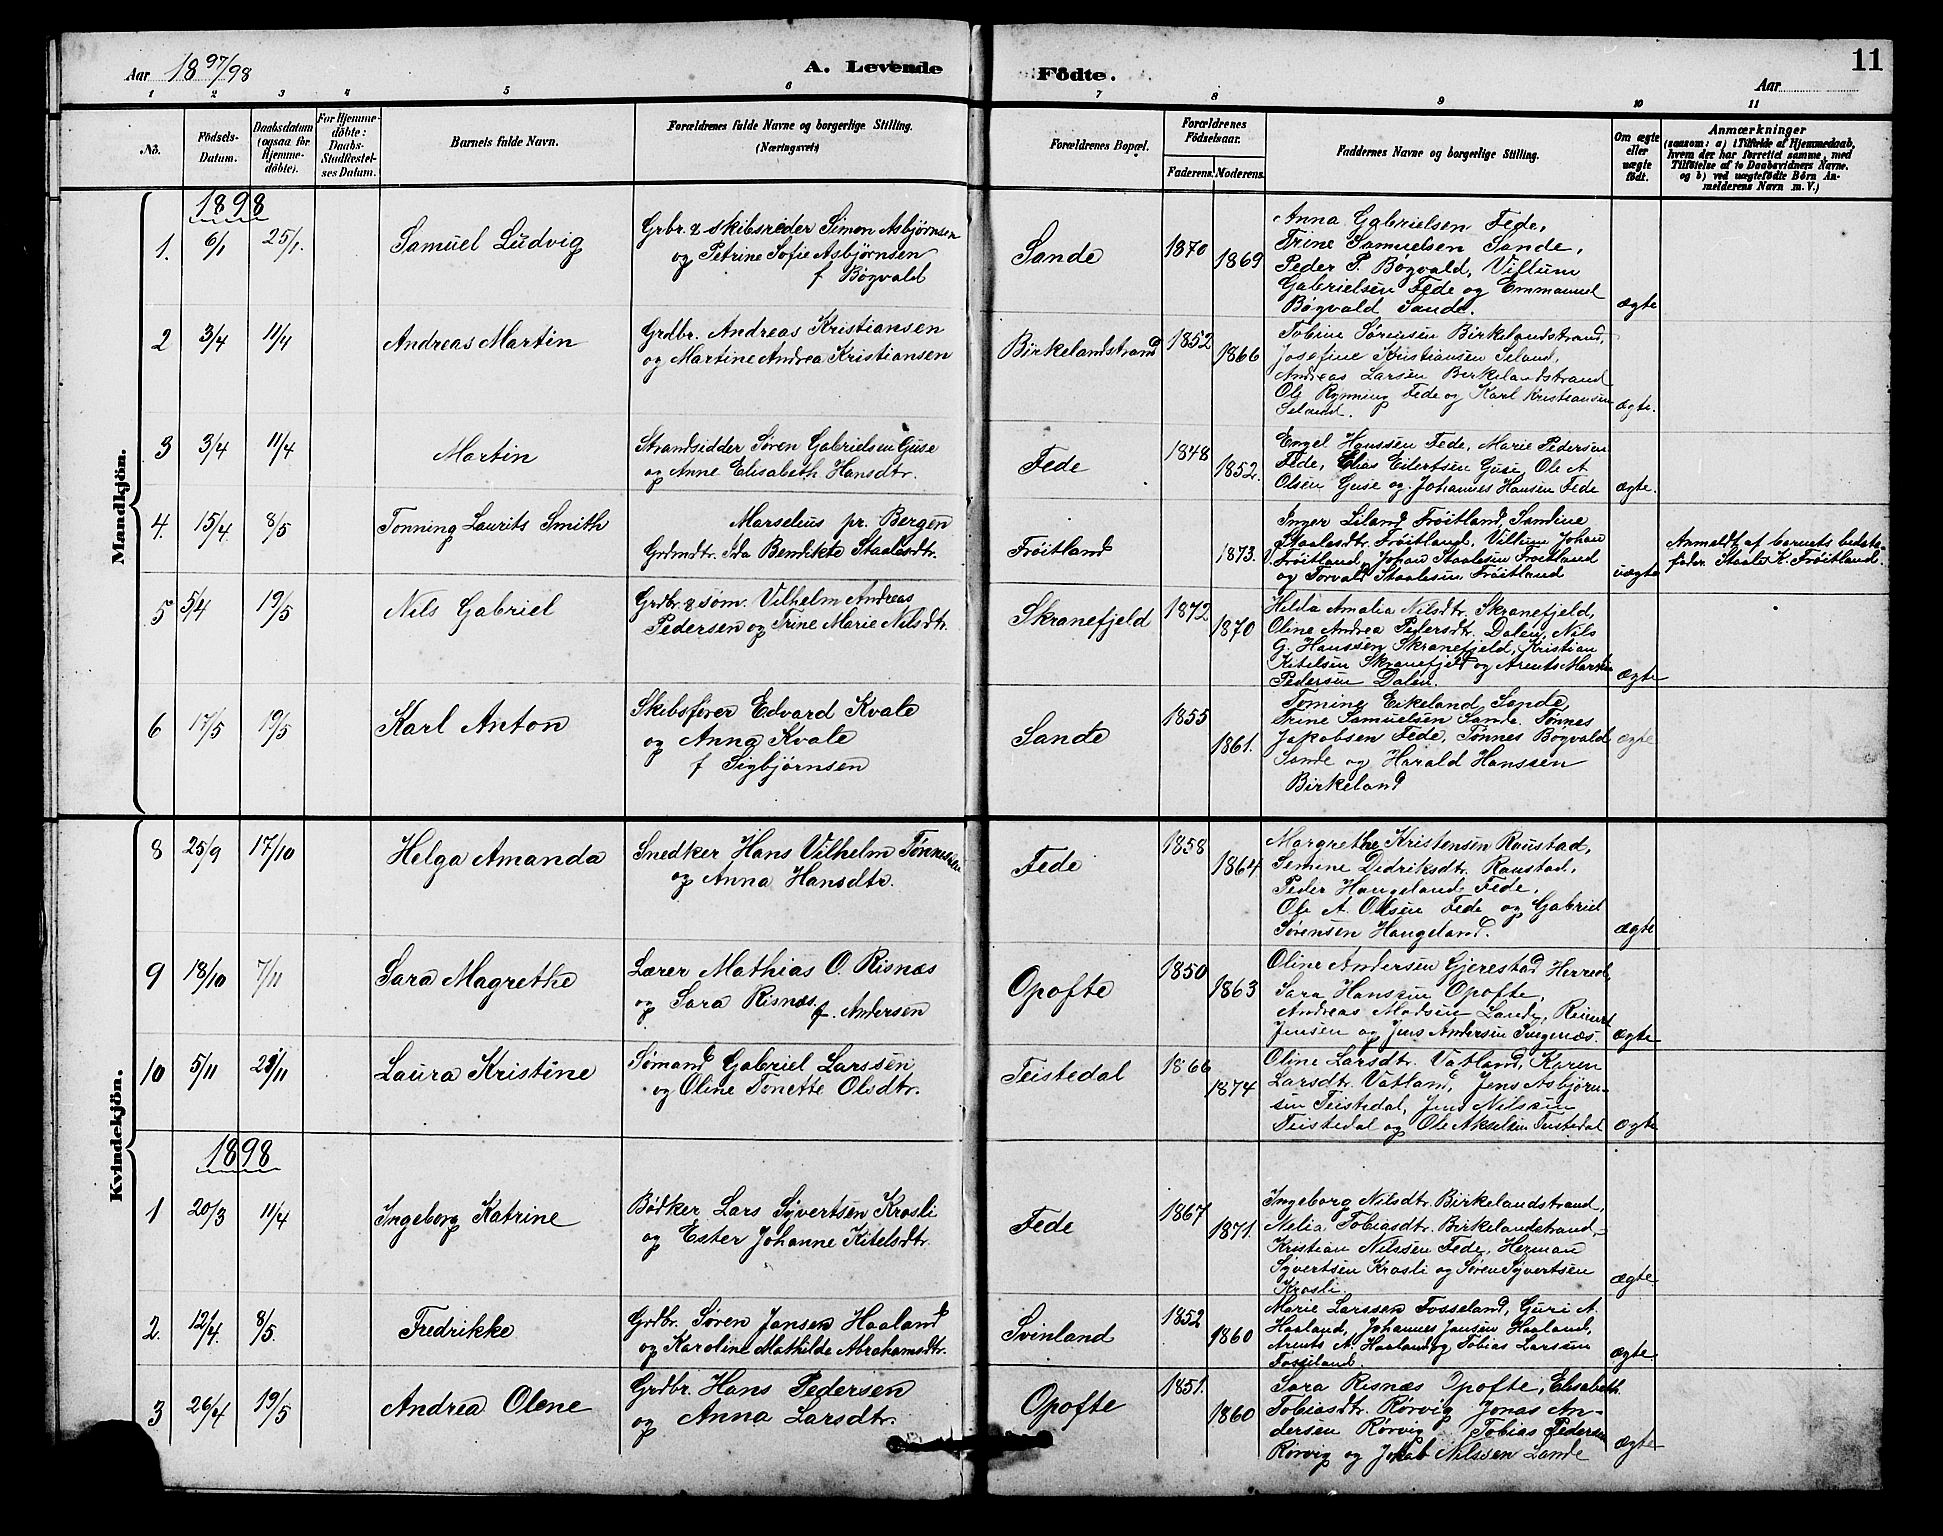 Aar 1897/98
A. Levende Födte.
Aar
11
1 2 3 4 5 6 7 8 9 10 11
No.
Födsels-Datum.
Daabsdatum (ogsaa for Hjemmedöbte).
For Hjemmedöbte: Daabs-Stadfæstelses Datum.
Barnets fulde Navn.
Forældrenes fulde Navne og borgerlige Stilling.
(Næringsvei)
Forældrenes Bopæl.
Forældrenes Födselsaar.
Faderens. Moderens.
Faddernes Navne og borgerlige Stilling.
Om ægte eller uægte födt.
Anmærkninger
(saasom: a) i Tilfælde af Hjemmedaab,
hvem der har forrettet samme, med
Tilföielse af to Daabsvidners Navne.
og b) ved uægtefödte Börn An-
melderens Navn m. V.)
Mandkjön.
1898
1. 6/1 25/1. Samuel Ludvig
Grbr. & skibsreder Simon Asbjørnsen
og Petrine Sofie Asbjørnsen
f Bøgvald
Sande 1870 1869
Anna Gabrielsen Fede,
Trine Samuelsen Sande,
Peder P. Bøgvald, Villum
Gabrielsen Fede og Emmanuel
Bøgvald Sande.
ægte
2 3/4 11/4 Andreas Martin
Grdbr. Andreas Kristiansen
og Martine Andrea Kristiansen
Birkelandstrand 1852 1866
Tobine Sørensen Birkelandstrand,
Josefine Kristiansen Seland,
Andreas Larsen Birkelandstrand
Ole Rynning Fede og Karl Kristiansen
Seland.
ægte.
3 3/4 11/4 Martin
Strandsidder Søren Gabrielsen Guse
og Anne Elisabeth Hansdtr.
Fede 1848 1852.
Engel Hanssen Fede, Marie Pedersen
Fede, Elias Eilertsen Guse, Ole A
Olsen Guse og Johannes Hansen Fede
ægte.
4. 15/4 8/5 Tonning Laurits Smith
Marselius pr. Bergen
Grdmdtr. Ida Bendikte Staalesdtr.
Frøitland 1873.
Inger Liland Frøitland, Sandine
Staalesdtr. Frøitland, Villum Johan
Frøitland, Johan Staalesen Frøitland
og Torvald Staalesen Frøitland
uægte
Anmeldt af barnets bedste-
fader Staale K. Frøitland.
5 5/4 19/5 Nils Gabriel
Grdbr. & søm. Vilhelm Andreas
Pedersen og Trine Marie Nilsdtr.
Skranefjeld 1872 1870
Hilda Amalia Nilsdtr. Skranefjeld,
Oline Andrea Pedersdtr. Dalen, Nils
G. Hanssen Skranefjeld, Kristian
Kitelsen Skranefjeld og Arents Martin
Pedersen Dalen.
ægte
6 17/5 19/5 Karl Anton
Skibsfører Edvard Kvale
og Anna Kvale
f Sigbjørnsen
Sande 1855 1861.
Tomine Eikeland Sande,
Trine Samuelsen Sande. Tønnes
Jakobsen Fede, Tønnes Bøgvald
Sande og Harald Hanssen
Birkeland
ægte
Kvindekjön.
8 25/9 17/10 Helga Amanda
Snedker Hans Vilhelm Tønnessen
og Anna Hansdtr.
Fede 1858 1864
Margrethe Kristensen Raustad,
Semine Didriksdtr. Raustad,
Peder Haugeland Fede,
Ole A. Olsen Fede og Gabriel
Sørensen Haugeland.
ægte
9 18/10 7/11 Sara Magrethe
Lærer Mathias O. Risnæs
og Sara Risnæs. f. Andersen
Opofte 1850 1863
Oline Andersen Gjerestad Herred,
Sara Hanssen Opofte,
Andreas Madsen Lande, Reinert
Jensen og Jens Andersen Ingenæs.
ægte
10 5/11 28/11 Laura Kristine
Sømand Gabriel Larssen
og Oline Tonette Olsdtr.
Teistedal 1866 1874
Oline Larsdtr. Vatland, Karen
Larsdtr. Vatland, Jens Asbjørn-
sen Teistedal, Jens Nilssen
Teistedal og Ole Akselsen Teistedal
ægte
1898
1 20/3 11/4 Ingeborg Katrine
Bødker Lars Syvertsen Krosli
og Ester Johanne Kitelsdtr.
Fede 1867 1871.
Ingeborg Nilsdtr. Birkelandstrand,
Nelia Tobiasdtr. Birkelandstrand,
Kristian Nilssen Fede, Herman
Syvertsen Krosli og Søren Syvertsen
Krosli.
ægte
2. 12/4. 8/5. Fredrikke
Grdbr. Søren Jansen Haaland
og Karoline Mathilde Abrahamsdtr.
Svinland 1852 1860
Marie Larssen Fosseland, Guri A.
Haaland, Johannes Jansen Haaland,
Arents A. Haaland og Tobias Larsen
Fosseland.
ægte.
3 26/4 19/5 Andrea Olene
Grdbr. Hans Pedersen
og Anna Larsdtr.
Opofte 1851. 1860
Sara Risnæs Opofte, Elisabeth
Tobiasdtr. Rørvig Jonas An-
dersen Rørvig Tobias Pedersen
Rørvig og Jakob Nilssen Lande
ægte